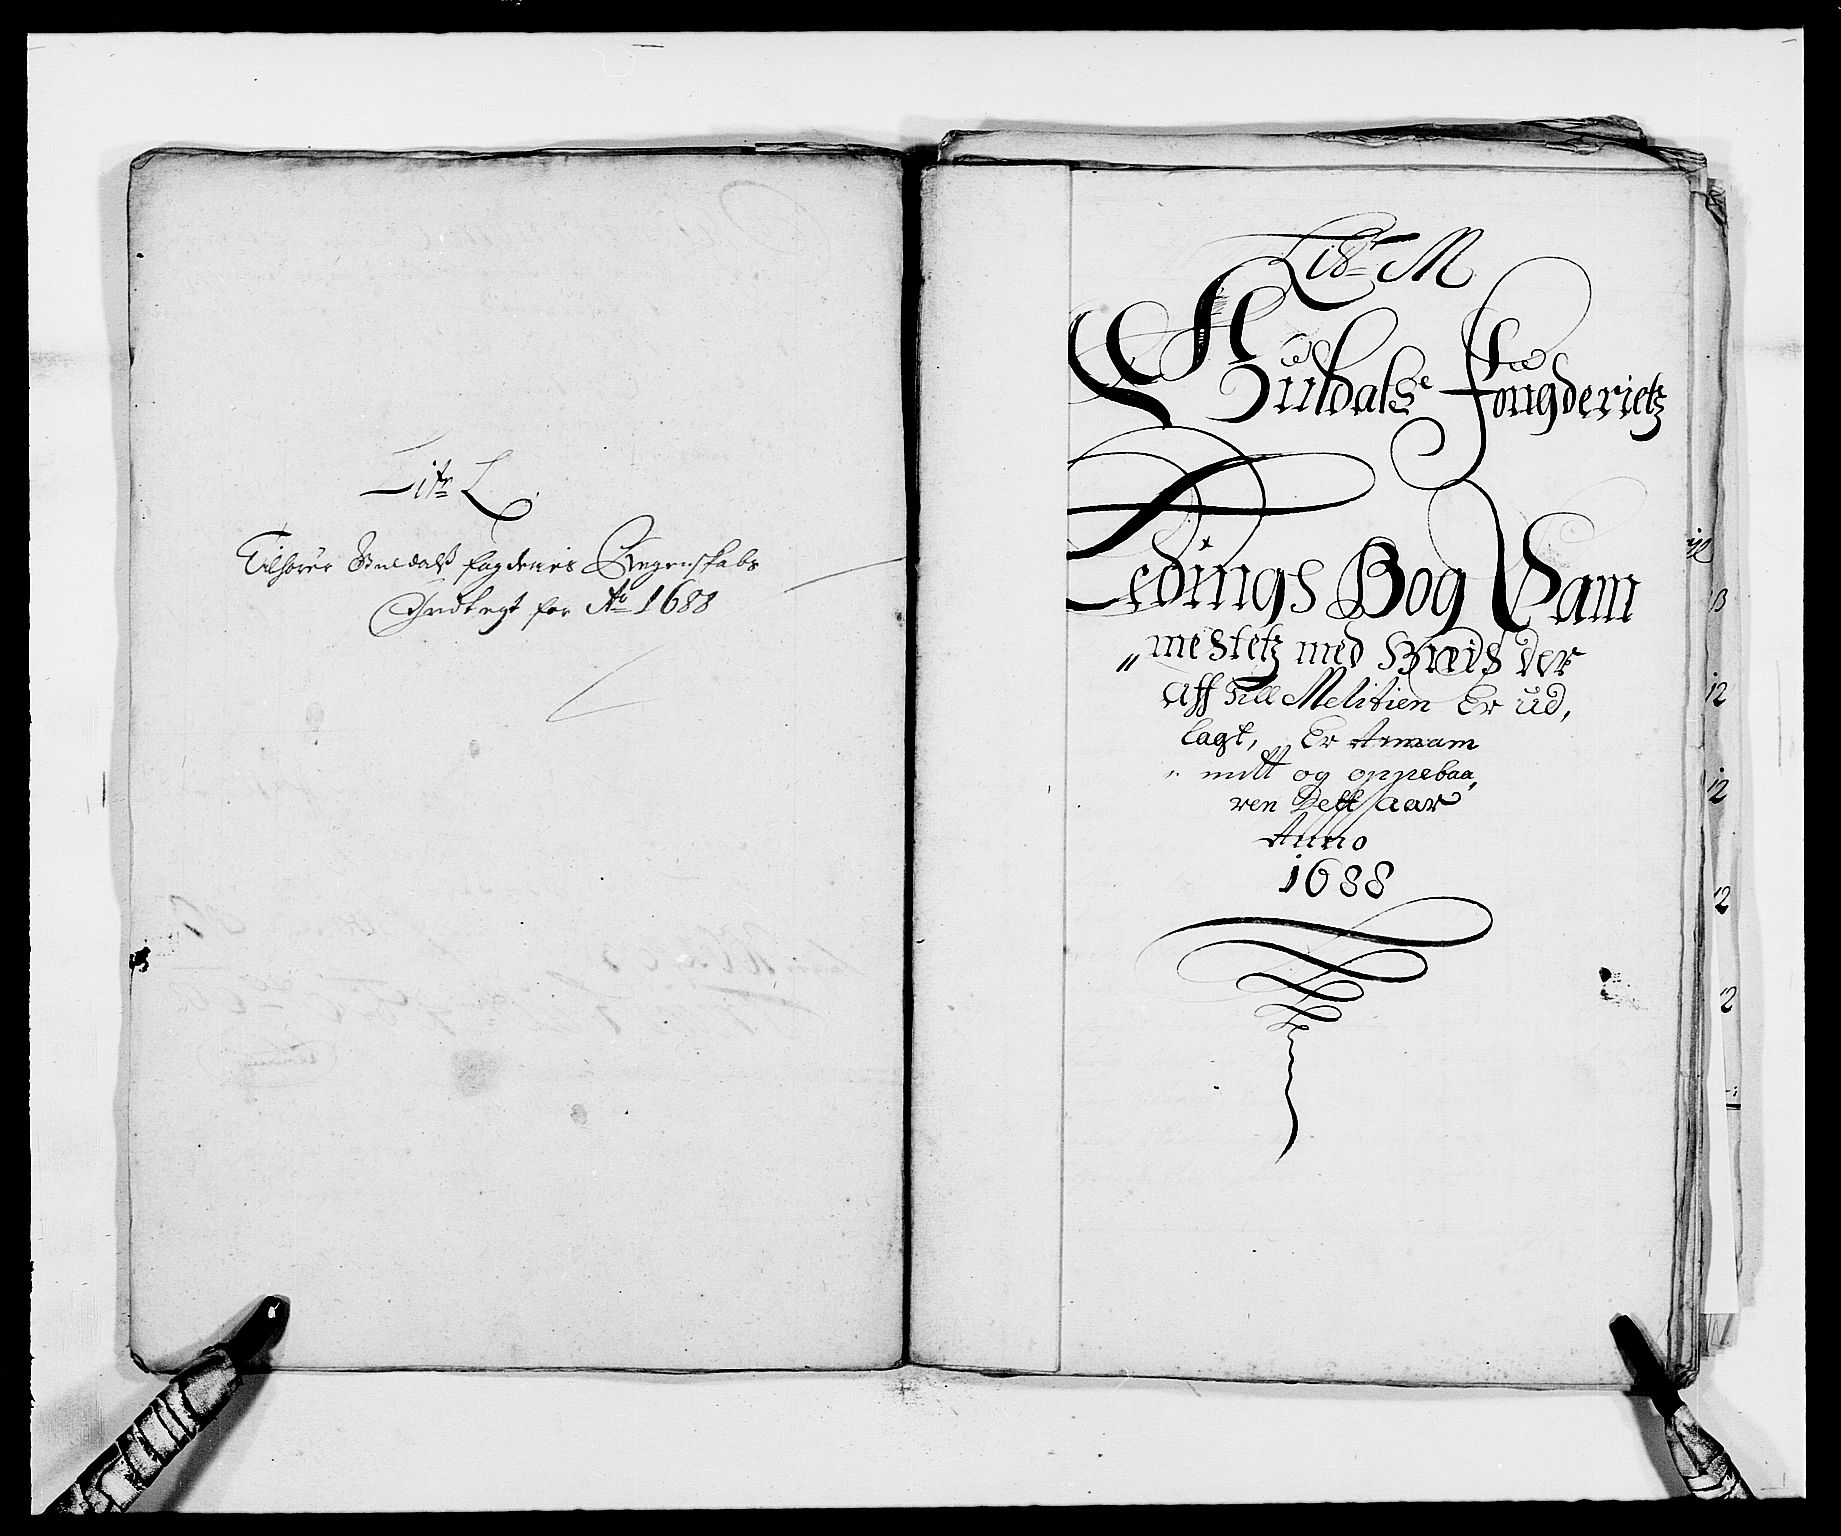 Litr L.
Tilhörer Suldals fogderis Regenskabs
Indtegt for Ao 1688
Litr M
Suldals Fougderietz
Ledings Bog Sam
„ me Stetz med
Aff Till Melitien Er ud,
lagt, Er Annam
„ mitt og oppebaa,
ren Dette aar
Anno
1688
12
12
12
12